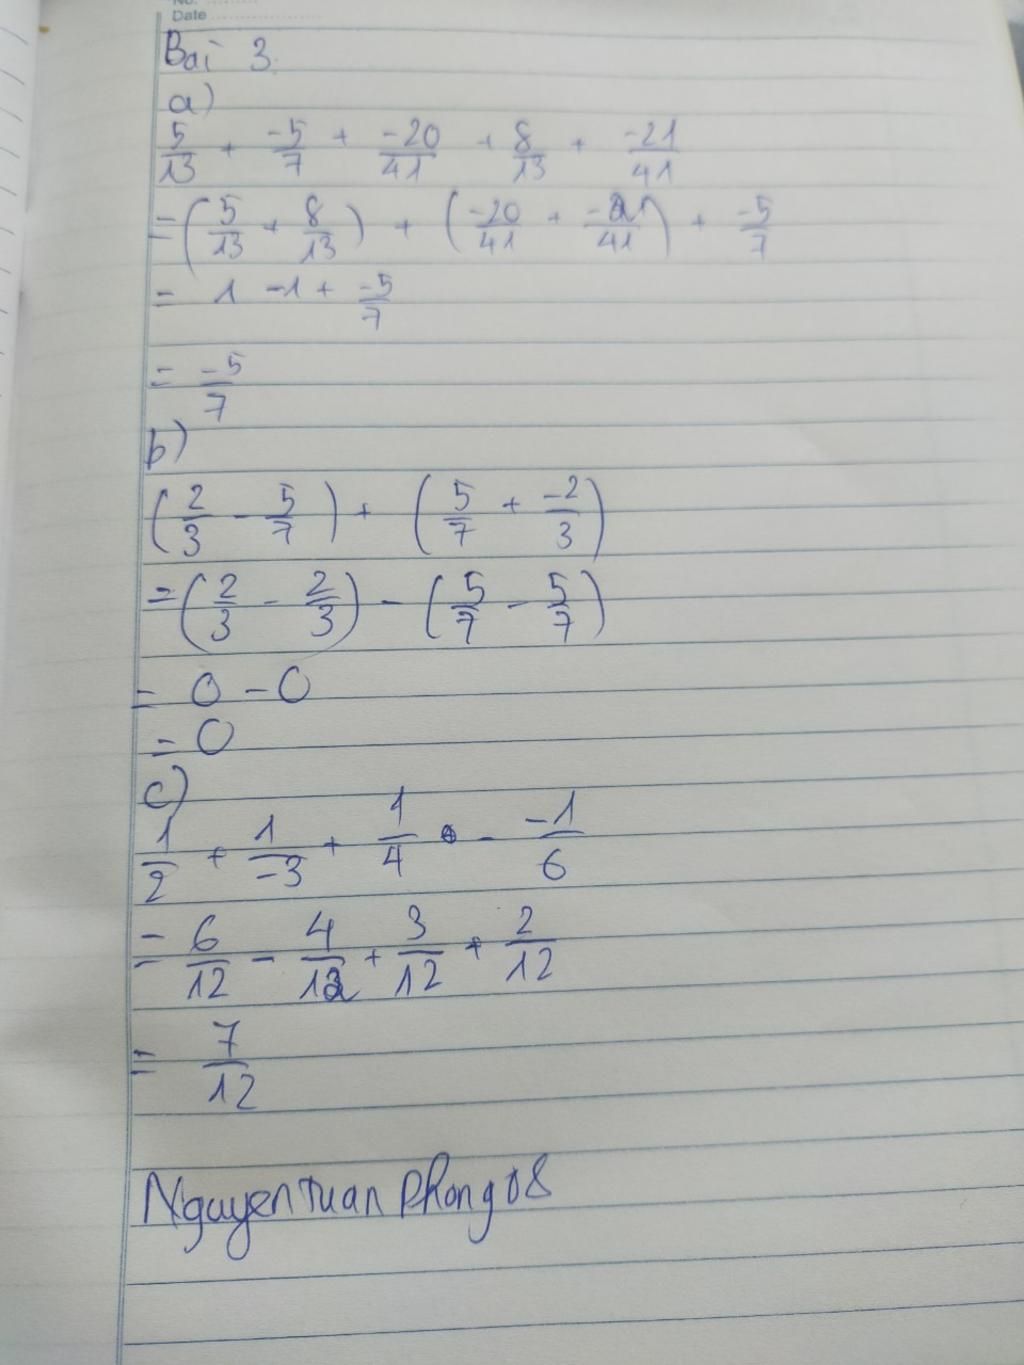 No. ..........
Date ....................
Bai 3.
a)
5/13 + -5/7 + -20/41 + 8/13 + -21/41
= (5/13 + 8/13) + (-20/41 + -21/41) + -5/7
= 1 -1 + -5/7
= -5/7
b)
(2/3 - 5/7) + (5/7 + -2/3)
= (2/3 - 2/3) - (5/7 - 5/7)
= 0 - 0
= 0
c)
1/2 + 1/-3 + 1/4 - -1/6
= 6/12 - 4/12 + 3/12 + 2/12
= 7/12
NguyenTuanPhong08